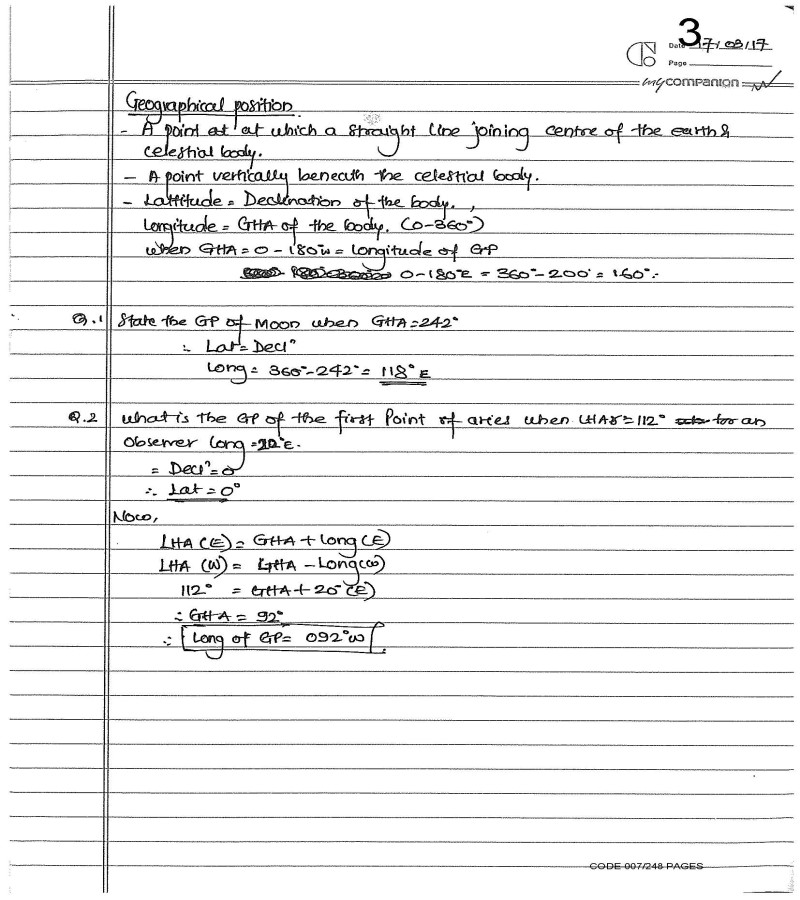 3
Date 17/03/17
Page
mycompanion
Geographical position.
- A point at at which a straight line joining centre of the earth &
celestial body.
- A point vertically beneath the celestial body.
- Lattitude = Declination of the body.,
Longitude = GHA of the body. (0-360°)
when GHA = 0 - 180°W = longitude of GP
0-180°E = 360° - 200° = 160°.
Q.1 State the GP of Moon when GHA = 242°
∴ Lat = Decl^n
Long = 360° - 242° = 118° E
Q.2 what is the GP of the first Point of aries when LHAϒ = 112° for an
Observer long = 20°E.
= Decl^n = 0
∴ Lat = 0°
Now,
LHA (E) = GHA + Long (E)
LHA (W) = GHA - Long (W)
112° = GHA + 20° (E)
∴ GHA = 92°
∴ Long of GP = 092°W
CODE 007/248 PAGES